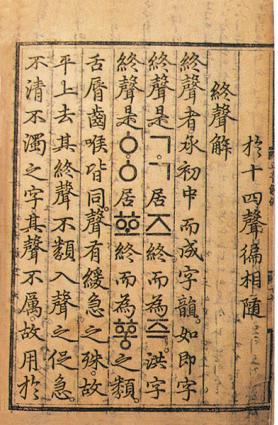 於十四聲徧相隨
終聲解
終聲者承初中而成字韻。如即字
終聲是ㄱ。ㄱ居즈終而為즉。洪字
終聲是ㆁ。ㆁ居ᅘᅩ終而為ᅘᅩᇰ之類。
舌脣齒喉皆同。聲有緩急之殊。故
平上去其終聲不類入聲之促急。
不清不濁之字。其聲不厲。故用於